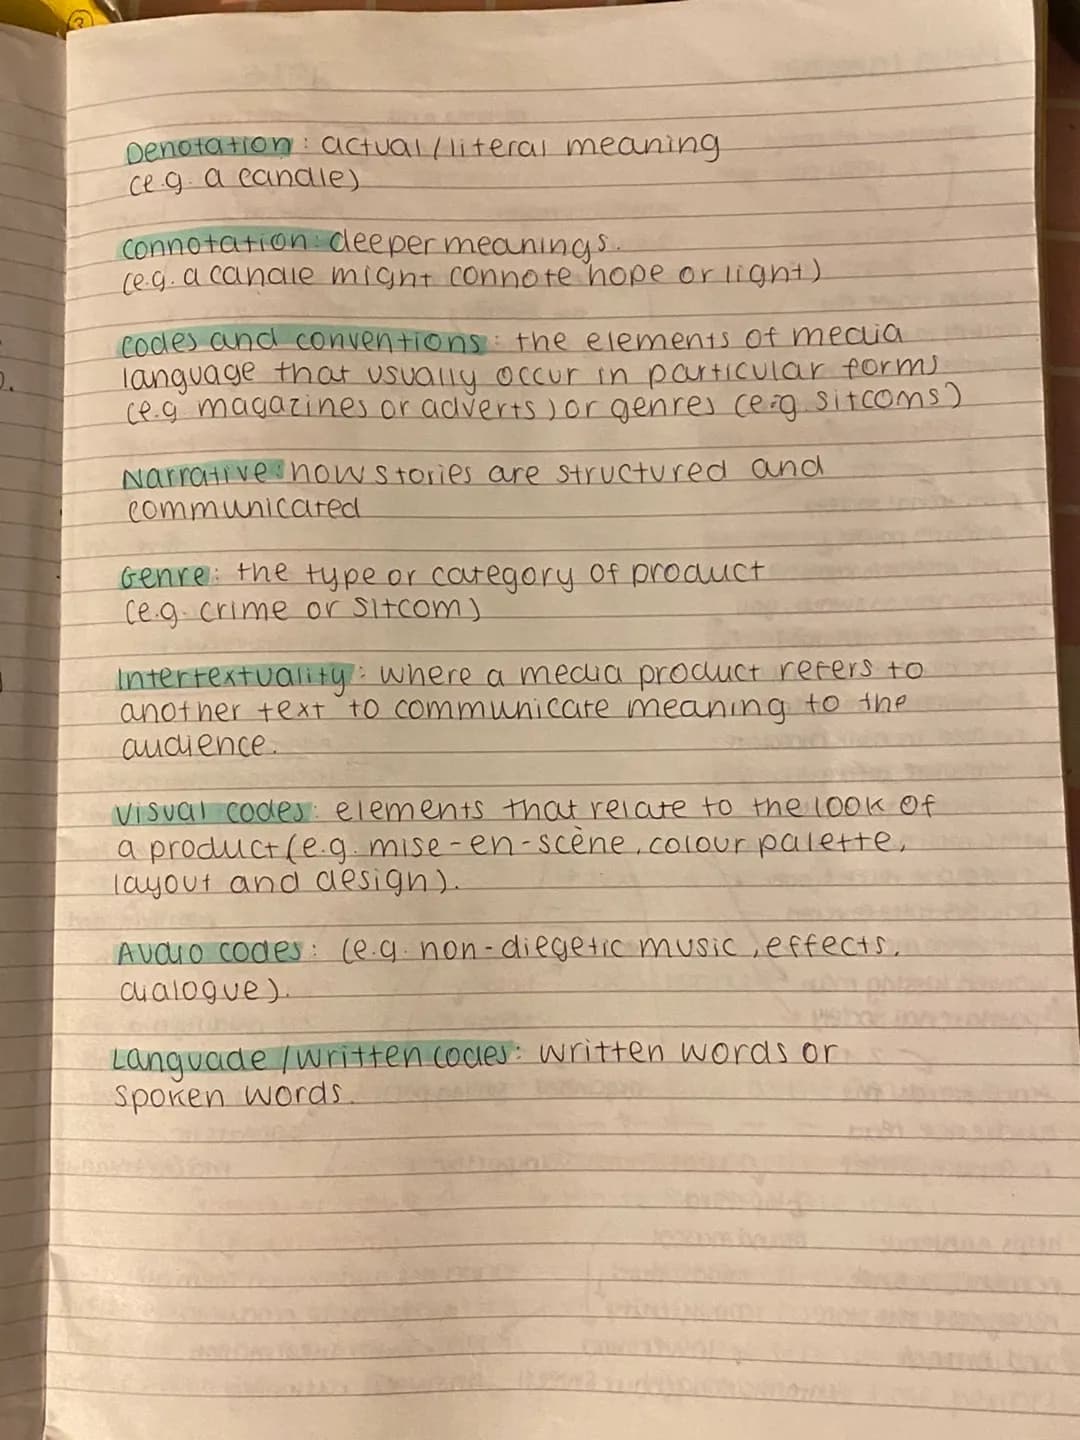 3
Denotation: actual/literal meaning
(e.g. a candle)
Connotation: deeper meanings.
(e.g. a candle might connote hope or light)
Codes and conventions: the elements of media
language that usually occur in particular forms
(e.g magazines or adverts) or genres (e.g. sitcoms)
Narrative: how stories are structured and
communicated
Genre: the type or category of product
(e.g. crime or sitcom)
Intertextuality: where a media product refers to
another text to communicate meaning to the
audience.
Visual codes: elements that relate to the look of
a product (e.g. mise-en-scène, colour palette,
layout and design).
Audio codes: (e.g. non-diegetic music, effects,
dialogue).
Languade /written codes: written words or
spoken words.